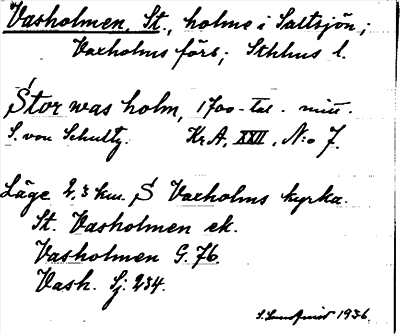 Vasholmen, St., holme i Saltsjön;
Vaxholms förs; Sthlms l.
Stor was holm, 1700-tal. mitt.
S. von Schultz. Kr.A. XXII, N:o 7.
Läge 2,3 km. S Vaxholms kyrka.
St. Vasholmen ek.
Vasholmen G. 76.
Vash. Sj. 234.
S. Lundqvist 1936.